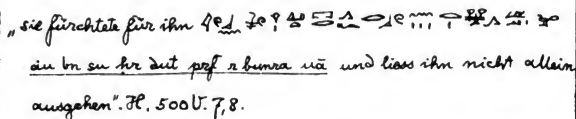 „sie fürchtete für ihn
àu bn su ḥr dut prf r bunra uā und liess ihn nicht allein
ausgehen". H, 500 V. 7,8.